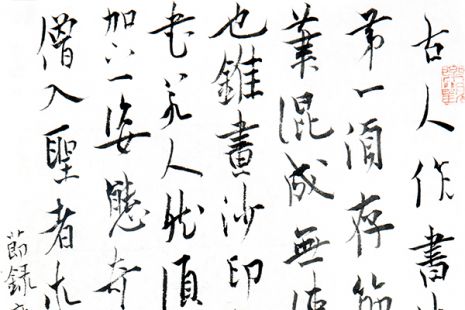 古人作書
第一須存筋
筆混成無使
也錐畫沙印
人然須
加以一姿態奇
僧入聖者
節錄